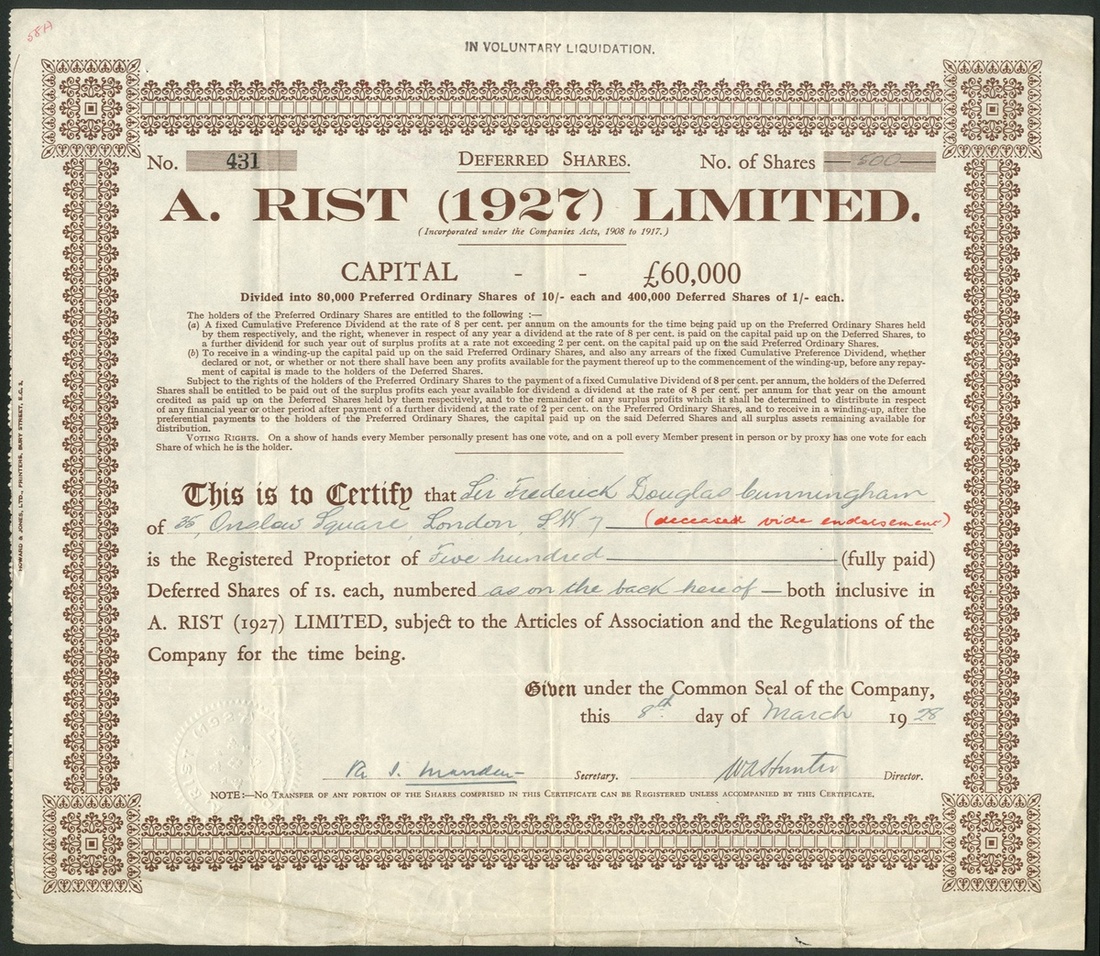 58A
IN VOLUNTARY LIQUIDATION.
No. 431 DEFERRED SHARES. No. of Shares 500
A. RIST (1927) LIMITED.
(Incorporated under the Companies Acts, 1908 to 1917.)
CAPITAL - - £60,000
Divided into 80,000 Preferred Ordinary Shares of 10/- each and 400,000 Deferred Shares of 1/- each.
The holders of the Preferred Ordinary Shares are entitled to the following :—
(a) A fixed Cumulative Preference Dividend at the rate of 8 per cent. per annum on the amounts for the time being paid up on the Preferred Ordinary Shares held
by them respectively, and the right, whenever in respect of any year a dividend at the rate of 8 per cent. is paid on the capital paid up on the Deferred Shares, to
a further dividend for such year out of surplus profits at a rate not exceeding 2 per cent. on the capital paid up on the said Preferred Ordinary Shares.
(b) To receive in a winding-up the capital paid up on the said Preferred Ordinary Shares, and also any arrears of the fixed Cumulative Preference Dividend, whether
declared or not, or whether or not there shall have been any profits available for the payment thereof up to the commencement of the winding-up, before any repay-
ment of capital is made to the holders of the Deferred Shares.
Subject to the rights of the holders of the Preferred Ordinary Shares to the payment of a fixed Cumulative Dividend of 8 per cent. per annum, the holders of the Deferred
Shares shall be entitled to be paid out of the surplus profits each year available for dividend a dividend at the rate of 8 per cent. per annum for that year on the amount
credited as paid up on the Deferred Shares held by them respectively, and to the remainder of any surplus profits which it shall be determined to distribute in respect
of any financial year or other period after payment of a further dividend at the rate of 2 per cent. on the Preferred Ordinary Shares, and to receive in a winding-up, after the
preferential payments to the holders of the Preferred Ordinary Shares, the capital paid up on the said Deferred Shares and all surplus assets remaining available for
distribution.
VOTING RIGHTS. On a show of hands every Member personally present has one vote, and on a poll every Member present in person or by proxy has one vote for each
Share of which he is the holder.
This is to Certify that Sir Frederick Douglas Cunningham
of 35, Onslow Square, London, S.W.7 (deceased vide endorsement)
is the Registered Proprietor of Five hundred (fully paid)
Deferred Shares of 1s. each, numbered as on the back hereof — both inclusive in
A. RIST (1927) LIMITED, subject to the Articles of Association and the Regulations of the
Company for the time being.
Given under the Common Seal of the Company,
this 8th day of March 1928
Secretary. W A Hunter Director.
NOTE:—NO TRANSFER OF ANY PORTION OF THE SHARES COMPRISED IN THIS CERTIFICATE CAN BE REGISTERED UNLESS ACCOMPANIED BY THIS CERTIFICATE.
HOWARD & JONES, LTD., PRINTERS, BURY STREET, E.C. 3.